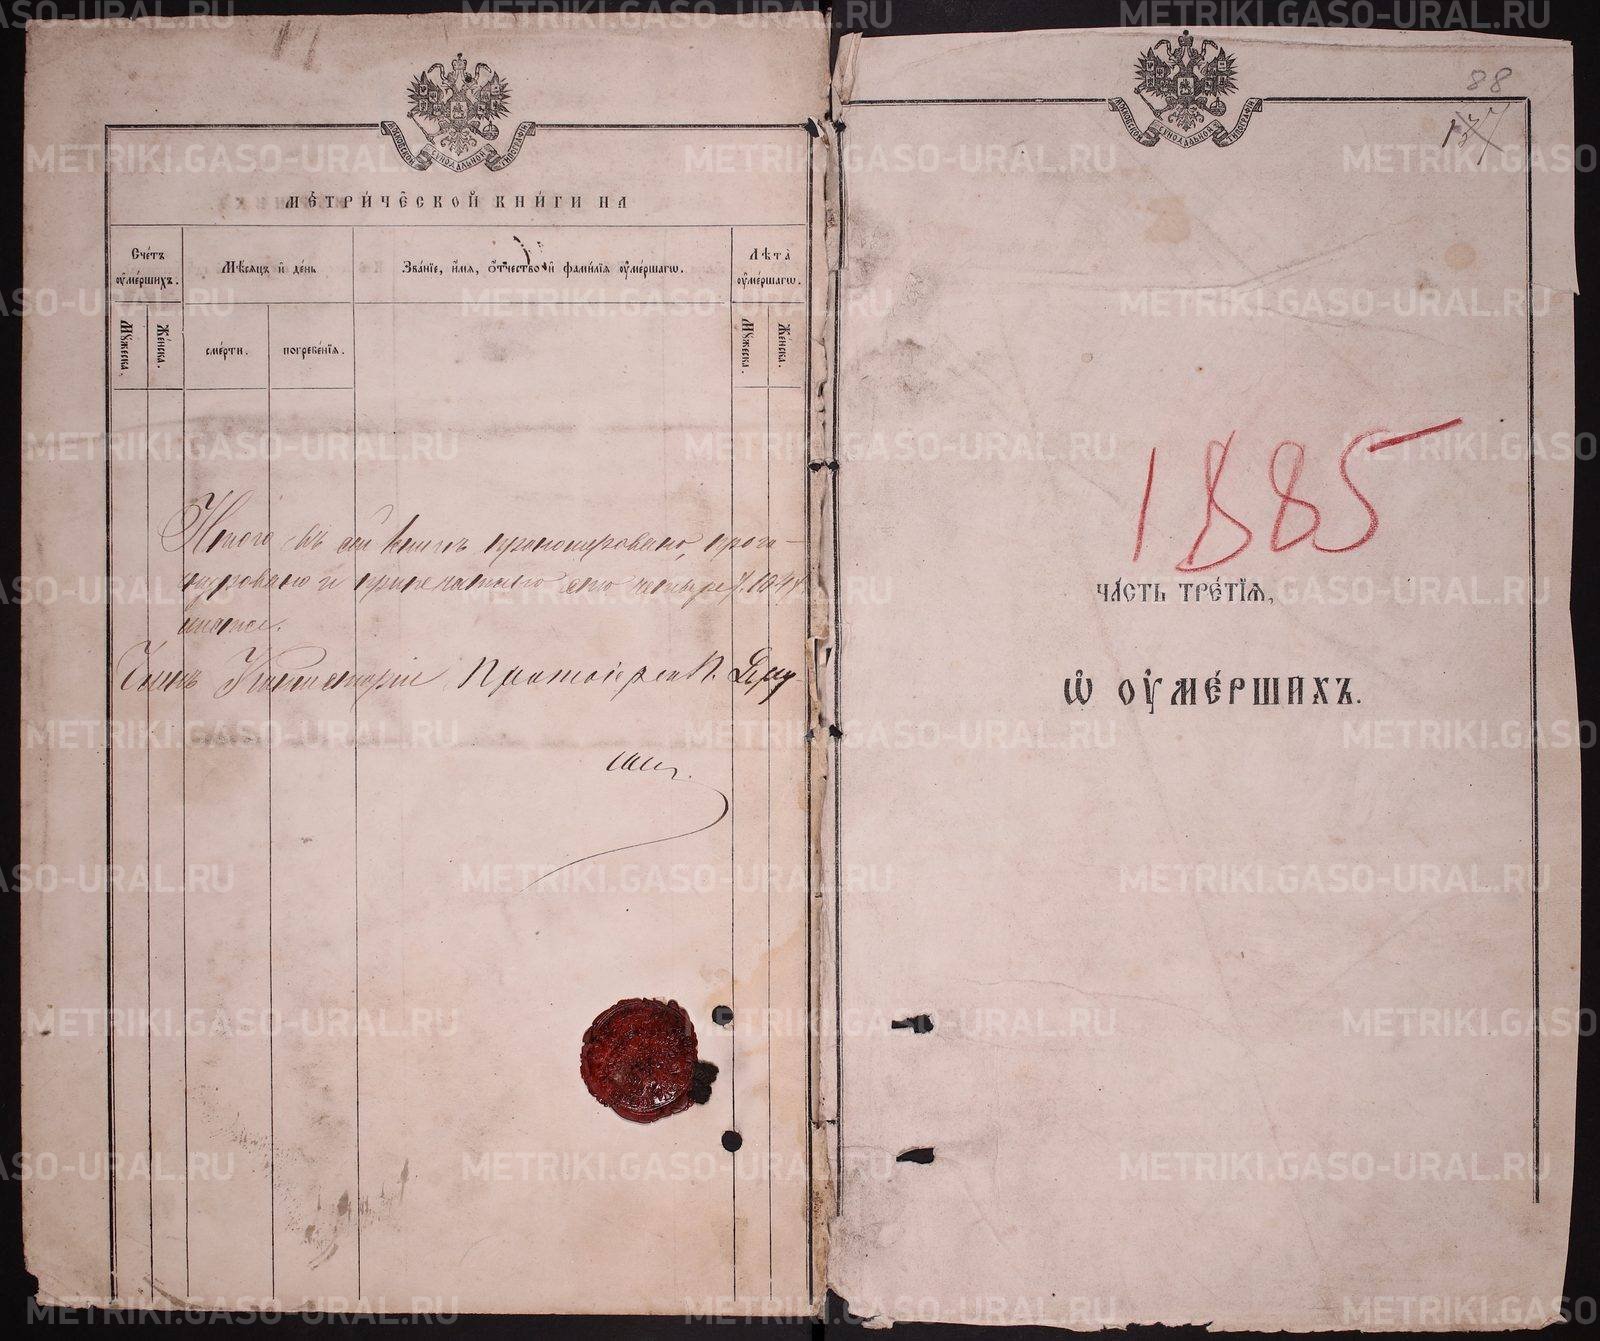 МОСКОВСКОЙ СѴНОДАЛЬНОЙ ТИПОГРАФІИ
МЕ́ТРИ́ЧЕСКОЙ КНИ́ГИ НА
Сче́тъ оу҆ме́ршихъ.
Мѣ́сяцъ и҆ де́нь
Зва́нїе, и҆́мя, ѻ҆́тчество и҆ фами́лїя оу҆ме́ршагѡ.
Лѣ́та оу҆ме́ршагѡ.
Мꙋ́жеска.
Же́нска.
сме́рти.
погребе́нїѧ.
Мꙋ́жеска.
Же́нска.
Итого въ сей книгѣ пронумеровано, прошнуровано и припечатано сто четыре / 104 /
Членъ Консисторіи, Протоіерей
88
137
МОСКОВСКОЙ СѴНОДАЛЬНОЙ ТИПОГРАФІИ
1885
ЧА́СТЬ ТРЕ́ТЇѦ,
Ѡ҆ ОУ҆МЕ́РШИХЪ.
METRIKI.GASO-URAL.RU